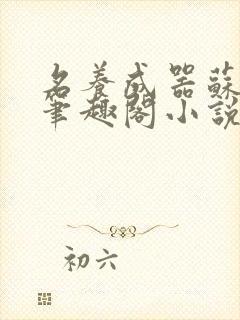 名養成器蘇
筆趣閣小說
初六